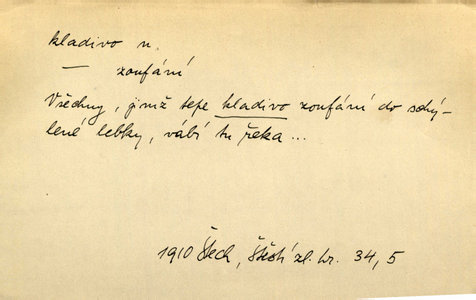 kladivo n.
— zoufání
Všechny, jimž tepe kladivo zoufání do schý-
lené lebky, vábí tu řeka...
1910 Štech, Štěstí zl. hr. 34,5